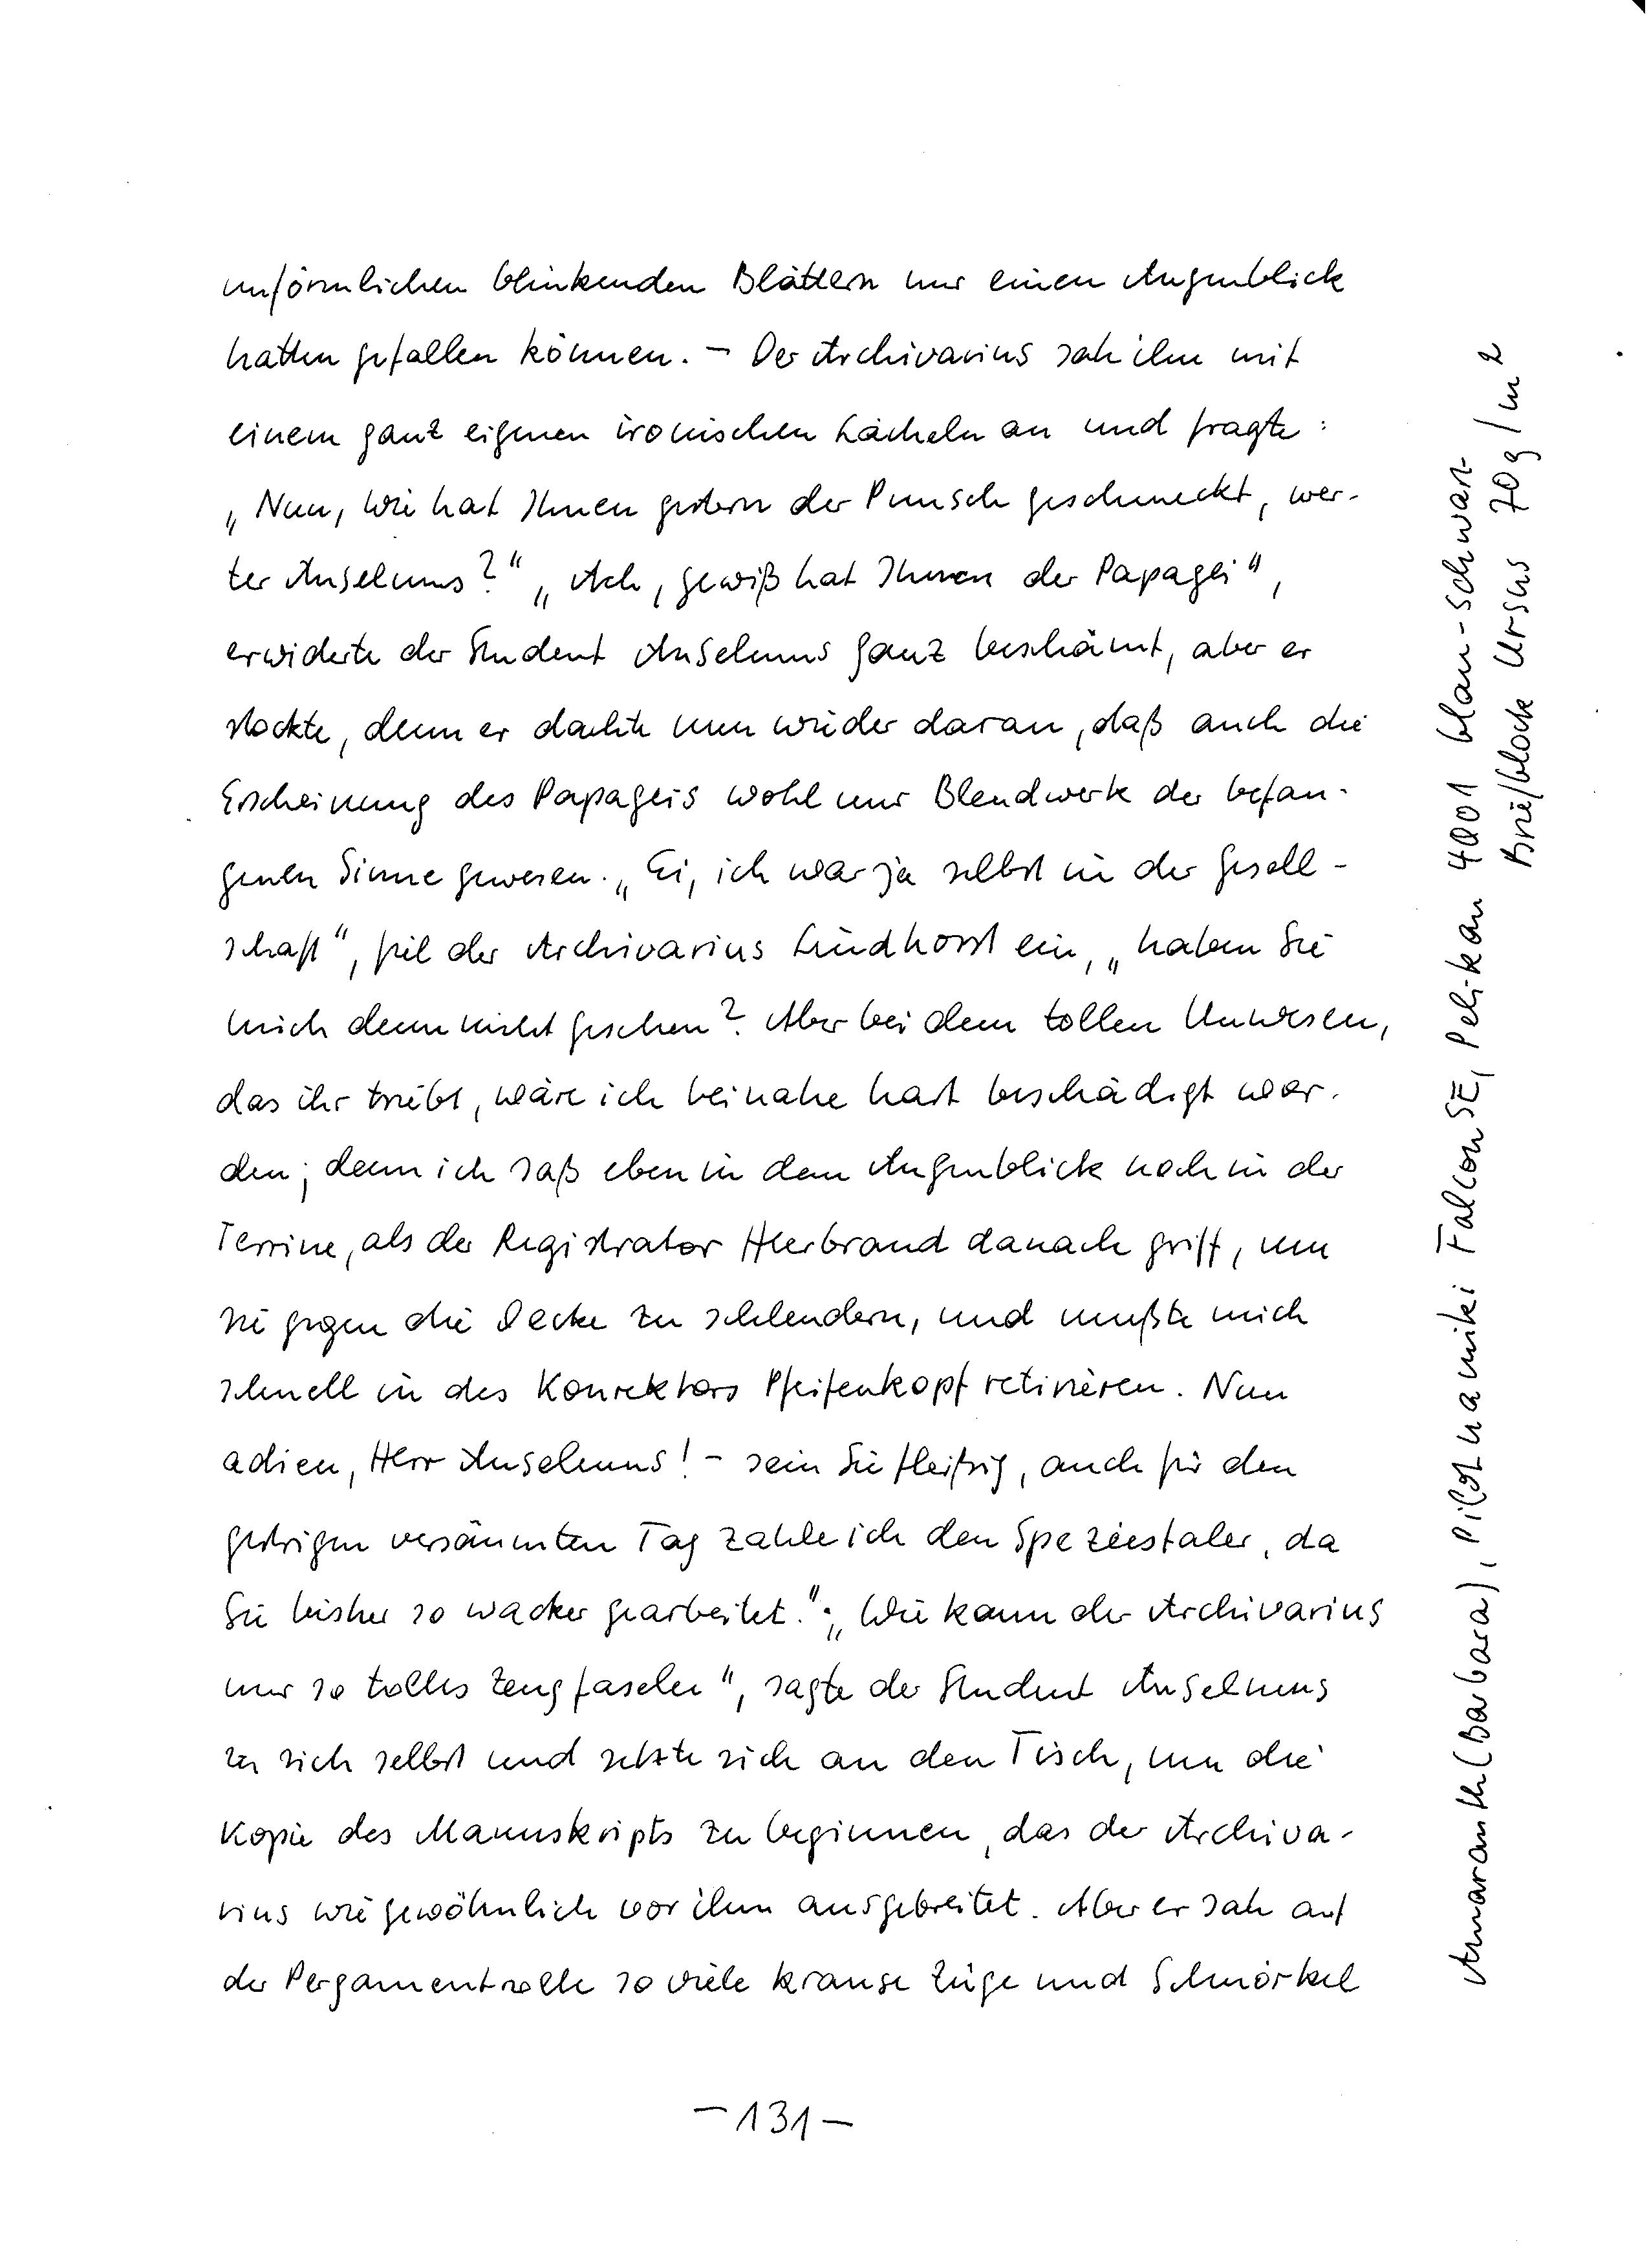 unförmlichen blinkenden Blättern nur einen Augenblick
hatten gefallen können. – Der Archivarius sah ihn mit
einem ganz eigenen ironischen Lächeln an und fragte:
„Nun, wie hat Ihnen gestern der Punsch geschmeckt, wer-
ter Anselmus?“ „Ach, gewiß hat Ihnen der Papagei“,
erwiderte der Student Anselmus ganz beschämt, aber er
stockte, denn er dachte nun wieder daran, daß auch die
Erscheinung des Papageis wohl nur Blendwerk der befan-
genen Sinne gewesen. „Ei, ich war ja selbst in der Gesell-
schaft“, fiel der Archivarius Lindhorst ein, „haben Sie
mich denn nicht gesehen? Aber bei dem tollen Unwesen,
das ihr triebt, wäre ich beinahe hart beschädigt wor-
den; denn ich saß eben in dem Augenblick noch in der
Terrine, als der Registrator Heerbrand danach griff, um
sie gegen die Decke zu schleudern, und mußte mich
schnell in des Konrektors Pfeifenkopf retirieren. Nun
adieu, Herr Anselmus! – sein Sie fleißig, auch für den
gestrigen versäumten Tag zahle ich den Speziestaler, da
Sie bisher so wacker gearbeitet.“ „Wie kann der Archivarius
nur so tolles Zeug faseln“, sagte der Student Anselmus
zu sich selbst und setzte sich an den Tisch, um die
Kopie des Manuskripts zu beginnen, das der Archiva-
rius wie gewöhnlich vor ihm ausgebreitet. Aber er sah auf
der Pergamentrolle so viele krause Züge und Schnörkel
– 131 –
Amaranth (Barbara), Pilot namiki Falcon SE, Pelikan 4001 blau-schwarz
Briefblock Ursus 70g/m²